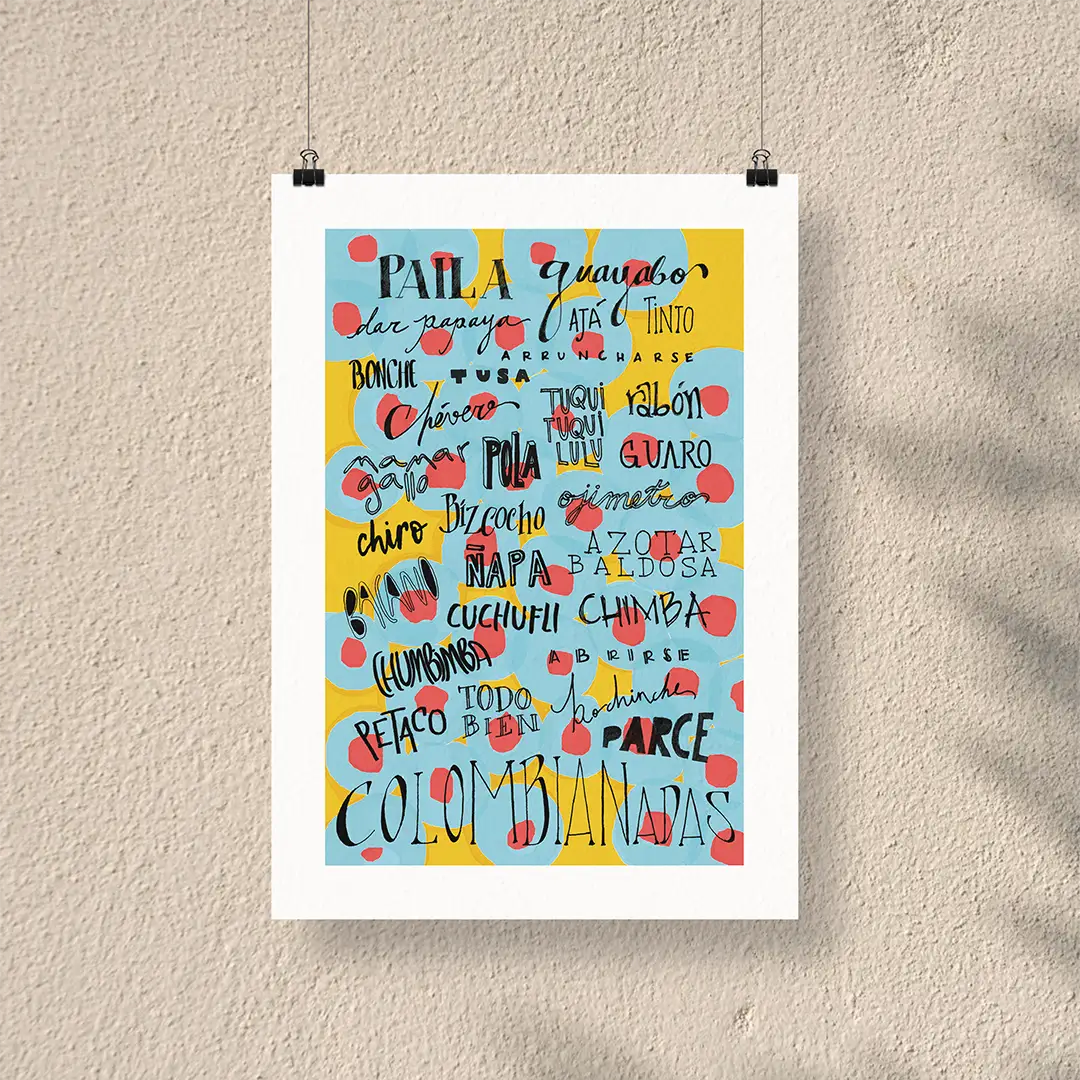 PAILA guayabo
dar papaya AJÁ TINTO
ARRUNCHARSE
BONCHE TUSA
Chévere TUQUI TUQUI LULU rabón
mamar gallo POLA GUARO
Bizcocho ojimetro
chiro
ÑAPA AZOTAR BALDOSA
BACANO CUCHUFLI CHIMBA
CHUMBIMBA ABRIRSE
PETACO TODO BIEN kochinche
PARCE
COLOMBIANADAS